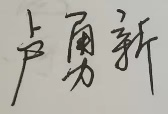 卢勇新